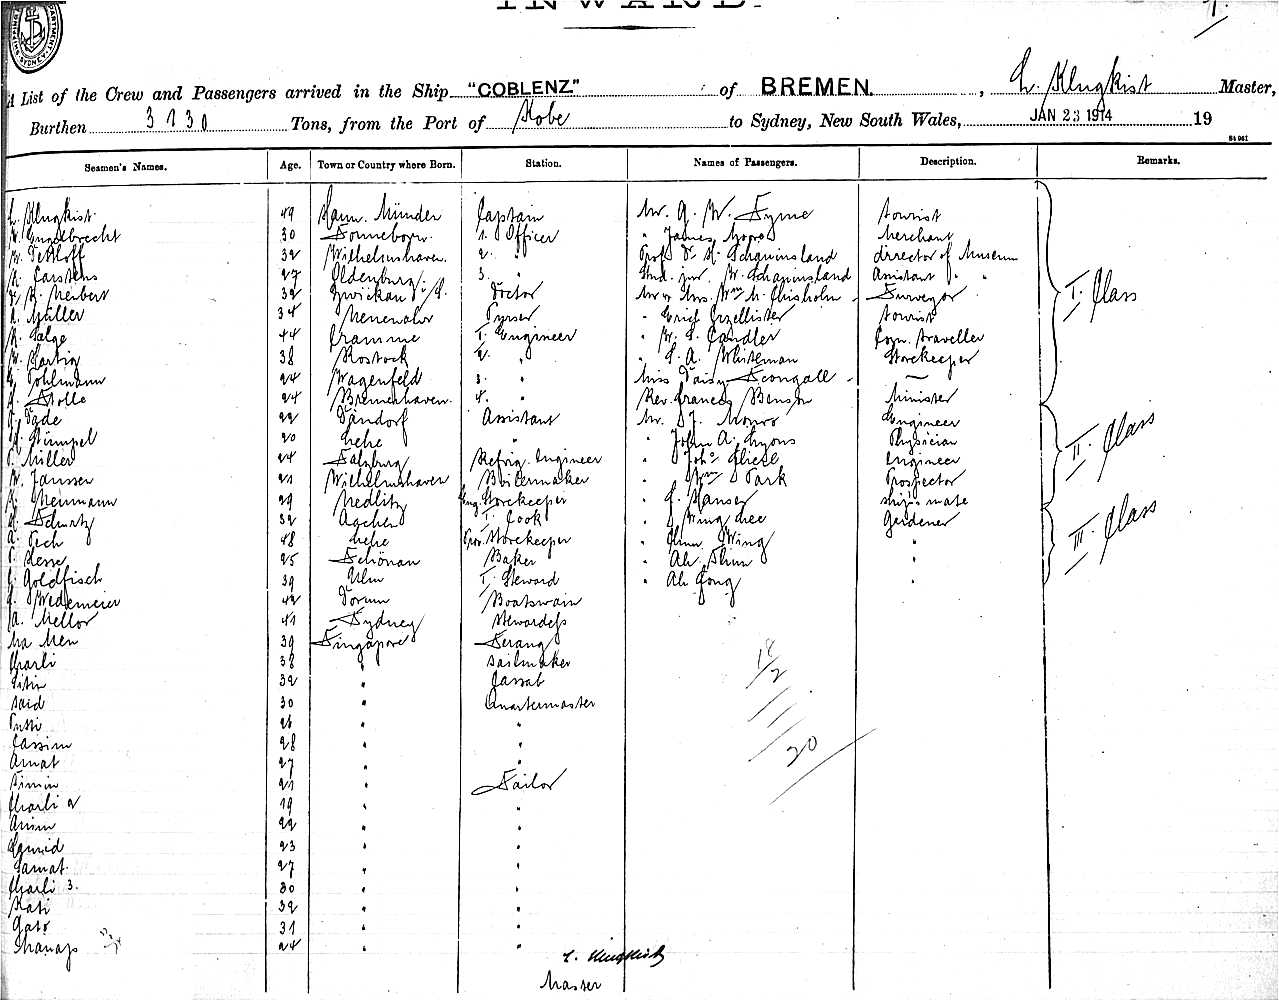 INWARD.
1.
List of the Crew and Passengers arrived in the Ship "COBLENZ." of BREMEN. , L. Klugkist Master,
Burthen 3130 Tons, from the Port of Kobe to Sydney, New South Wales, JAN 23 1914 19
Seamen's Names. Age. Town or Country where Born. Station. Names of Passengers. Description. Remarks.
L. Klugkist. 49 Hann. Münder Captain Mr. G. W. Syme tourist
Engelbrecht 30 Sonneborn. 1. Officer " James Merchant
W. Dethloff 32 Wilhelmshaven. 2. " Prof. Dr. H. Schauinsland director of Museum
K. Carstens 27 Oldenburg i/ 3. " Stud. jur. W. Schauinsland Assistant " "
Dr. K. Neibert 32 Zwickau i/S. Doctor Mr & Mrs. Wm M. Chisholm Surveyor I. Class
Müller 34 Purser " Erich tourist
Salge 44 Cramme I. Engineer " W. E. Candler Com. traveller
W. Hartig 38 Rostock 2. " " E. A. Whiteman Storekeeper
Pohlmann 24 Wagenfeld 3. " Miss Daisy —
Stolle 24 Bremerhaven. 4. " Rev. Frances Benson Minister
Tade 22 Dändorf Assistant Mr. J. Monro Engineer
Stümpel 20 Lehe " " John A. Lyons Physician II. Class
Miller 24 Salzburg Refrig. Engineer " Johs Engineer
W. Janssen 21 Wilhelmshaven Boilermaker " Wm Park Prospector
Neumann 29 Nedlitz Eng. Storekeeper " Hanser ship's mate
Schultz 32 Aachen I. Cook " Wing Lee Gardener
A. Pech 48 Lehe Prov. Storekeeper " Wing " III. Class
Hesse 25 Schönau Baker " Ah Shun "
Goldfisch 39 Ulm I. Steward " Ah Gong "
Wedemeier 42 Dorum Boatswain
A. Mellor 41 Sydney Stewardess
Ma Men 39 Singapore Serang
Charli 38 " Sailmaker
Sitin 32 " Cassab
Said 30 " Quartermaster
26 " "
Cassim 28 " "
Amat 27 " "
Simin 21 " Sailor
Charli 2 19 " "
Amin 22 " "
Hamid 23 " "
Samat. 27 " "
Charli 3. 30 " "
Kati 32 " "
Gato 31 " "
24 " "
18
2
20
L. Klugkist
Master